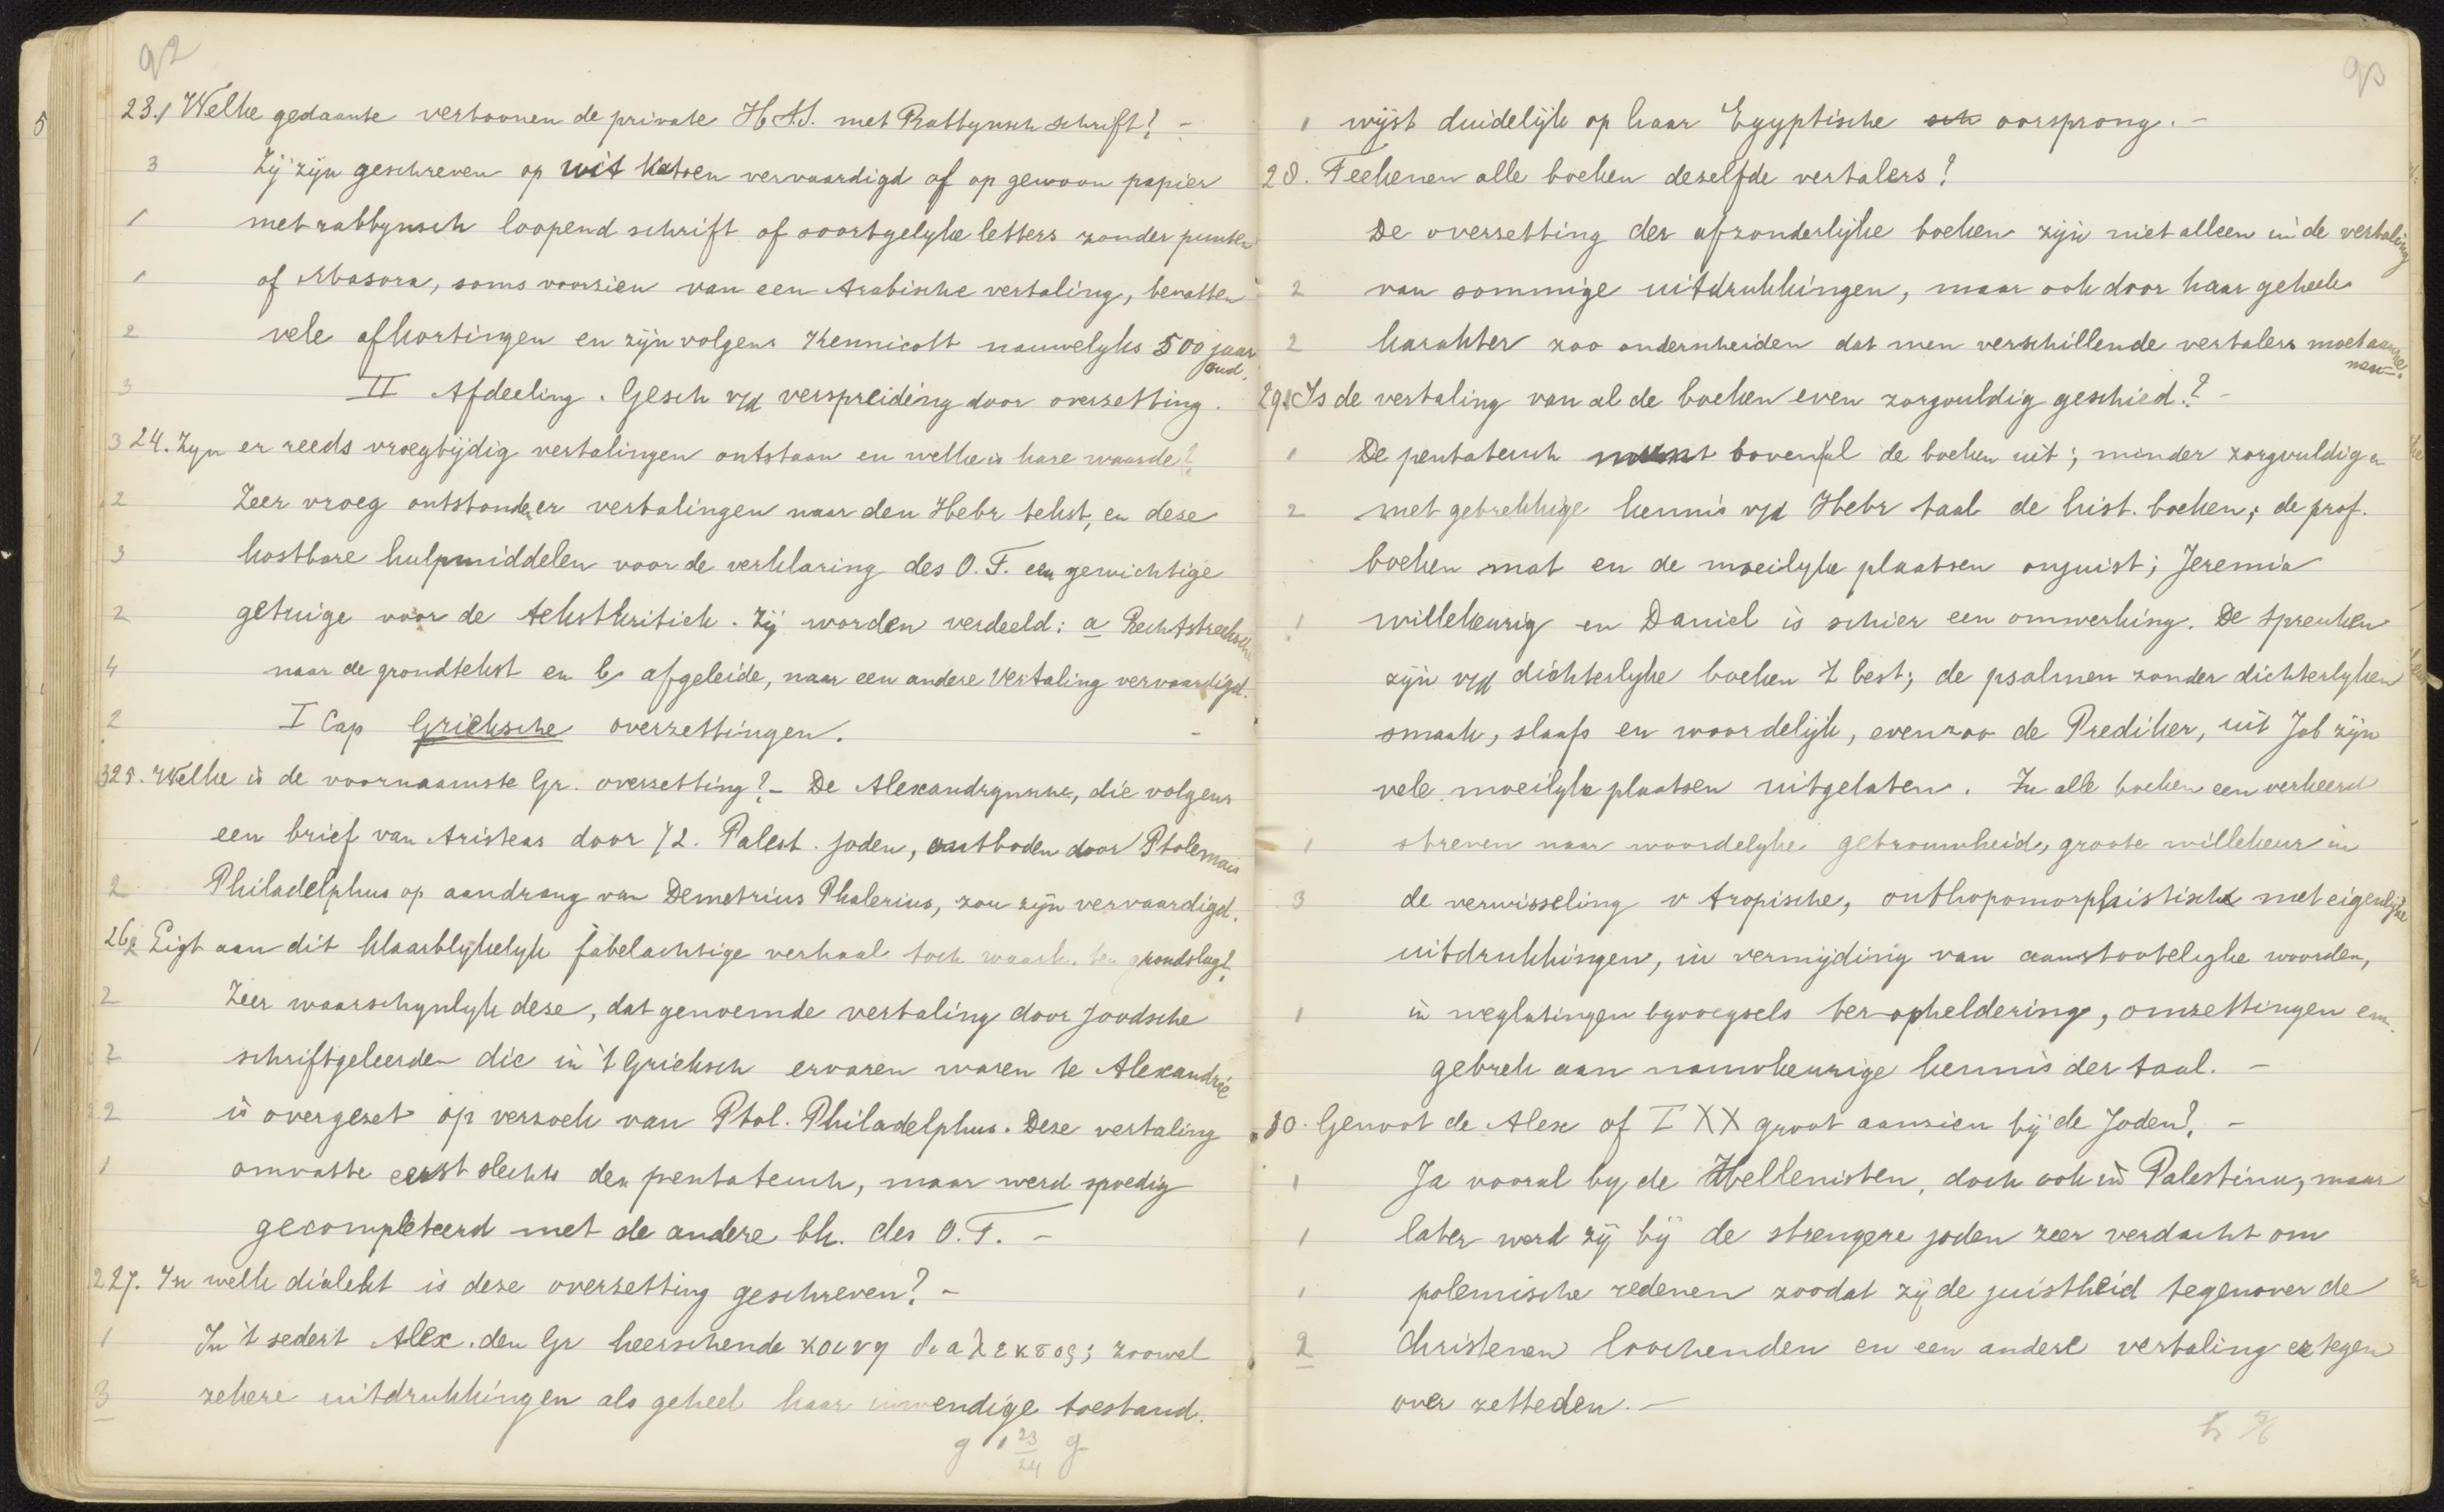 92
23. Welke gedaante vertoonen de private H.S.S. met Rabbynsch schrift? -
3 Zij zijn geschreven op wit katoen vervaardigd of op gewoon papier
1 met rabbynsch loopend schrift of soortgelyke letters zonder punten
1 of Masora, soms voorzien van een Arabische vertaling, bevatten
2 vele afkortingen en zijn volgens Kennicott nauwelyks 500 jaar
oud.
3 II Afdeeling. Gesch v/d verspreiding door overzetting.
3 24. Zyn er reeds vroegtijdig vertalingen ontstaan en welke is hare waarde?
2 Zeer vroeg ontstonden er vertalingen naar den Hebr tekst, en deze
3 kostbare hulpmiddelen voor de verklaring des O.T. een gewichtige
2 getuige voor de tekstkritiek. Zij worden verdeeld: a Rechtstreeksche
4 naar de grondtekst en b, afgeleide, naar een andere vertaling vervaardigd.
2 I Cap Grieksche overzettingen. -
3 25. Welke is de voornaamste Gr. overzetting? - De Alexandrynsche, die volgens
een brief van Aristeas door 72. Palest. joden, ontboden door Ptolemais
2 Philadelphus op aandrang van Demetrius Phalerius, zou zijn vervaardigd.
26. Ligt aan dit klaarblykelyk fabelachtige verhaal toch waarh. ten grondslag?
2 Zeer waarschynlyk deze, dat genoemde vertaling door Joodsche
2 schriftgeleerden die in 't Grieksch ervaren waren te Alexandrië
2 is overgezet op verzoek van Ptol. Philadelphus. Deze vertaling
1 omvatte eerst slechts den pentateuch, maar werd spoedig
gecompleteerd met de andere bk. des O.T. -
2 27. In welk dialekt is deze overzetting geschreven? -
1 In 't sedert Alex. den Gr heerschende κοινη διαλεκτος; zoowel
3 zekere uitdrukkingen als geheel haar inwendige toestand.
g 1 23/24 g
93
1 wijst duidelijk op haar Egyptische oorsprong. -
28. Teekenen alle boeken dezelfde vertalers?
De overzetting der afzonderlijke boeken zijn niet alleen in de vertaling
2 van sommige uitdrukkingen, maar ook door haar geheele
2 karakter zoo onderscheiden dat men verschillende vertalers moet aanne-
men. -
29. Is de vertaling van al de boeken even zorgvuldig geschied? -
1 De pentateuch munt boven al de boeken uit; minder zorgvuldig en
2 met gebrekkige kennis v/d Hebr taal de hist. boeken; de prof.
boeken mat en de moeilyke plaatsen onjuist; Jeremia
1 willekeurig en Daniel is schier een omwerking. De Spreuken
zijn v/d dichterlyke boeken 't best; de psalmen zonder dichterlyken
smaak, slaafs en woordelijk, evenzoo de Prediker, uit Job zijn
vele moeilyke plaatsen uitgelaten. In alle boeken een verkeerd
1 streven naar woordelyke getrouwheid, groote willekeur in
3 de verwisseling v tropische, onthopomorphistische met eigenlyke
uitdrukkingen, in vermijding van aanstootelyke woorden,
1 in weglatingen byvoegsels ter opheldering, omzettingen en
gebrek aan nauwkeurige kennis der taal. -
30. Genoot de Alex of LXX groot aanzien bij de Joden? -
1 Ja vooral by de Hellenisten, doch ook in Palestina, maar
1 later werd zij bij de strengere joden zeer verdacht om
1 polemische redenen zoodat zij de juistheid tegenover de
2 Christenen loochenden en een andere vertaling er tegen
over zetteden. -